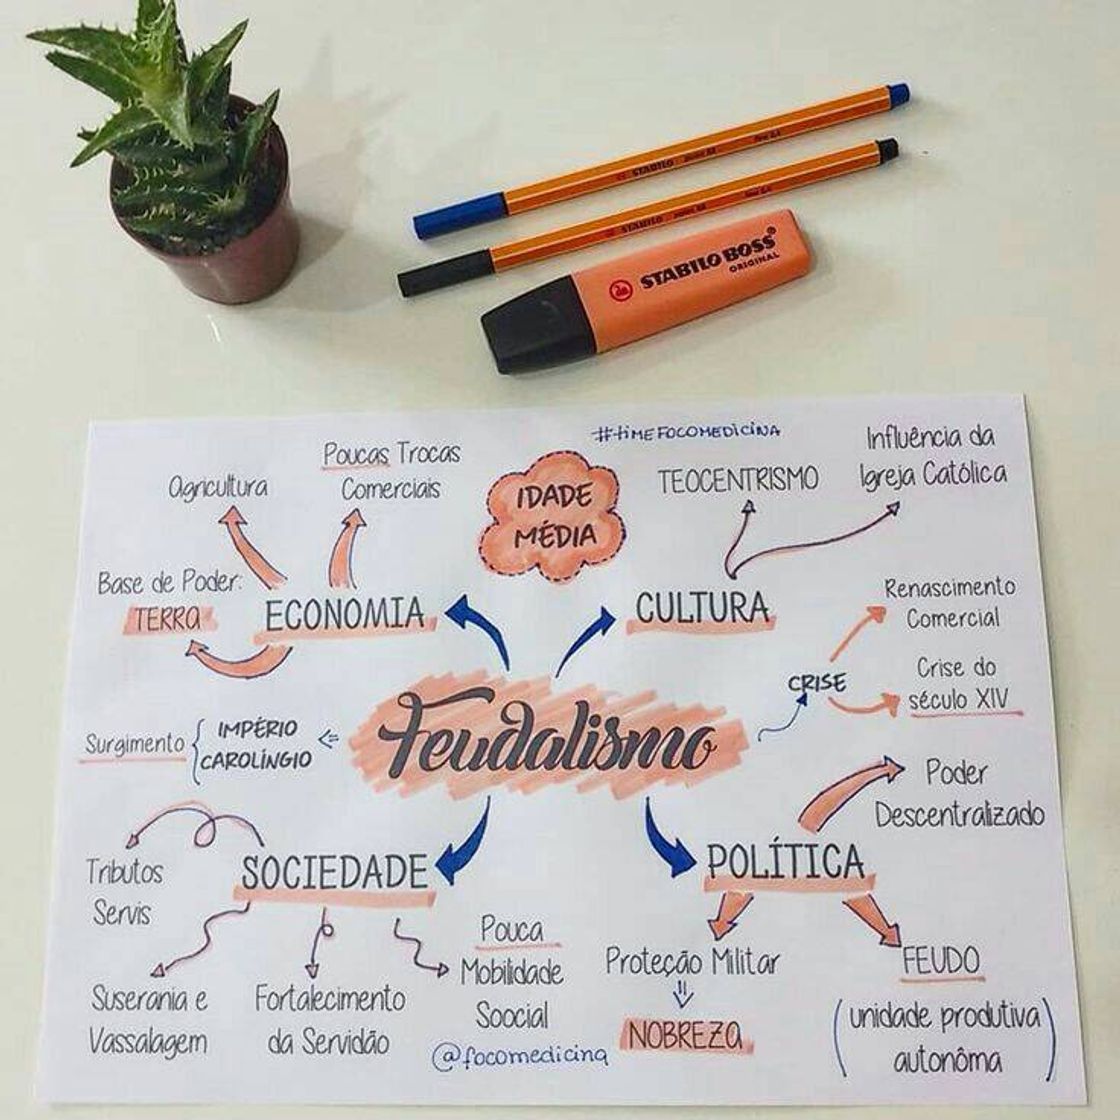 STABILO point 88 fine 0,4
STABILO point 88 fine 0,4
STABILO BOSS
ORIGINAL
#timEFOCOMEDICINA
IDADE
MÉDIA
Agricultura
Poucas Trocas
Comerciais
Base de Poder:
TERRA
ECONOMIA
TEOCENTRISMO
Influência da
Igreja Católica
CULTURA
CRISE
Renascimento
Comercial
Crise do
século XIV
Feudalismo
Surgimento
IMPÉRIO
CAROLÍNGIO
SOCIEDADE
Tributos
Servis
Suserania e
Vassalagem
Fortalecimento
da Servidão
Pouca
Mobilidade
Soocial
POLÍTICA
Poder
Descentralizado
Proteção Militar
NOBREZA
FEUDO
(unidade produtiva
autonôma)
@focomedicina